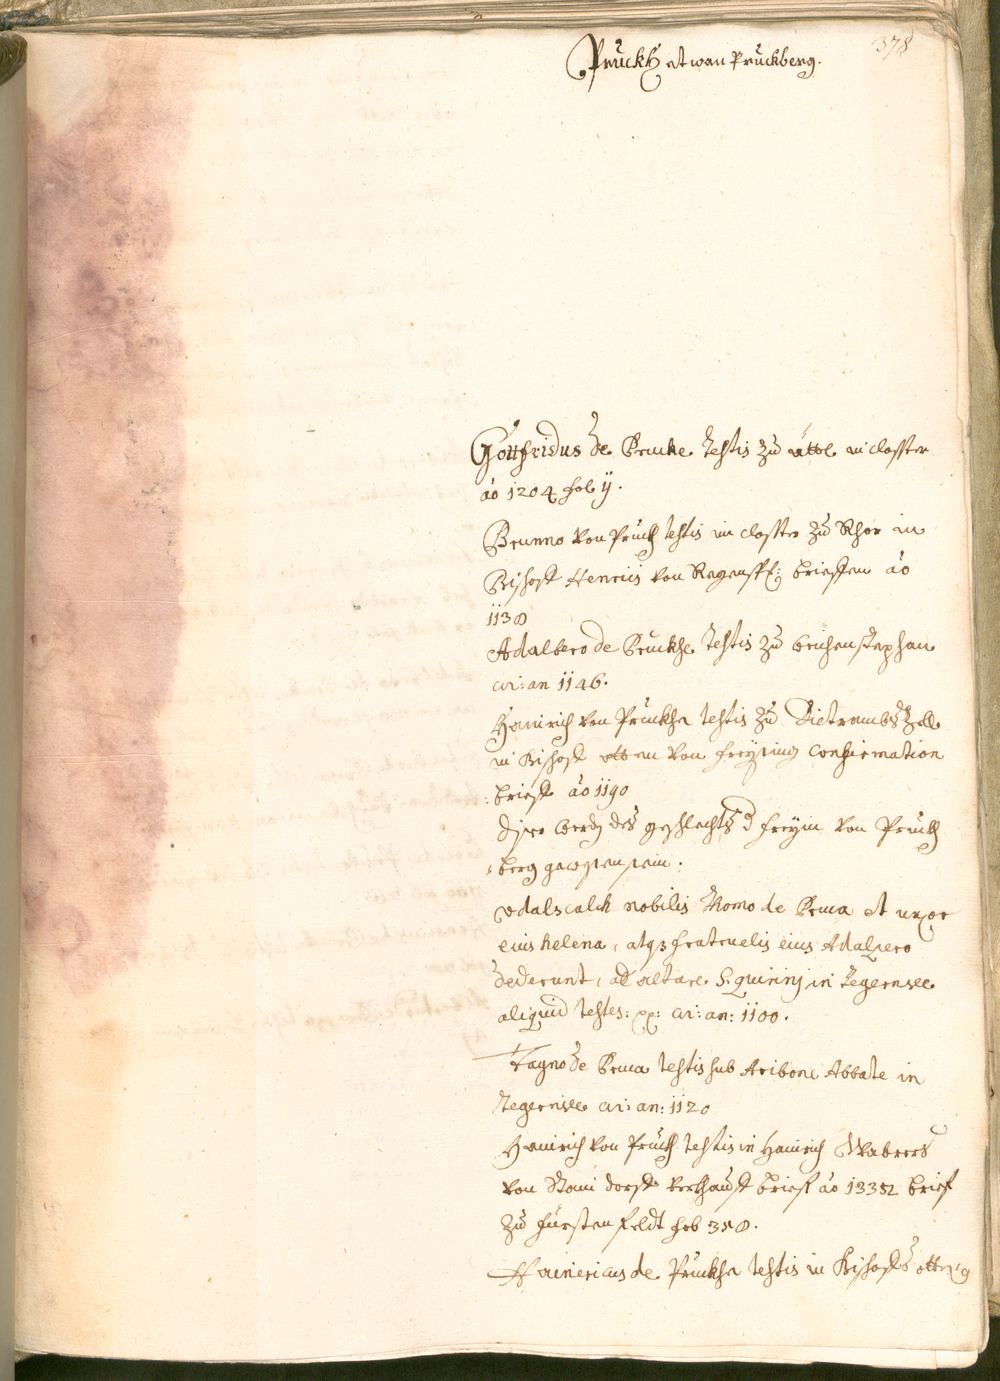 378
Pruckh etwan Pruckberg.
Gottfridus de Prucke testis zů ättl in closter
ao 1204 fol ij.
Brunno von Pruckh testis im closter zů Rhor in
Bischoff Henrici von Regenspg: brieffen ao
1138
Adalbero de Pruckhe testis zů weichenstephan
cir: an 1146.
Hainrich von Pruckhe testis zů Dietrambszell
in Bischoff otten von freysing confirmation
brieff ao 1190
diser werdn des geschlechts d freyin von Pruckh
berg gewesen sein.
vdalscalch nobilis Homo de Pruca et uxor
eius helena, atq3 fratruelis eius Adalpero
dederunt, ad altare S. quirinj in Tegernsee
aliquid testes: pp: cir: an: 1100.
Tagno de Pruca testis sub Aribone Abbate in
Tegernsee cir: an: 1120
Hainrich von Pruckh testis in Hainrich
von dorff verkhauff brief ao 1332 brief
zů fürstenfeldt fol 358.
Hainericus de Pruckhe testis in Bischoffs otten